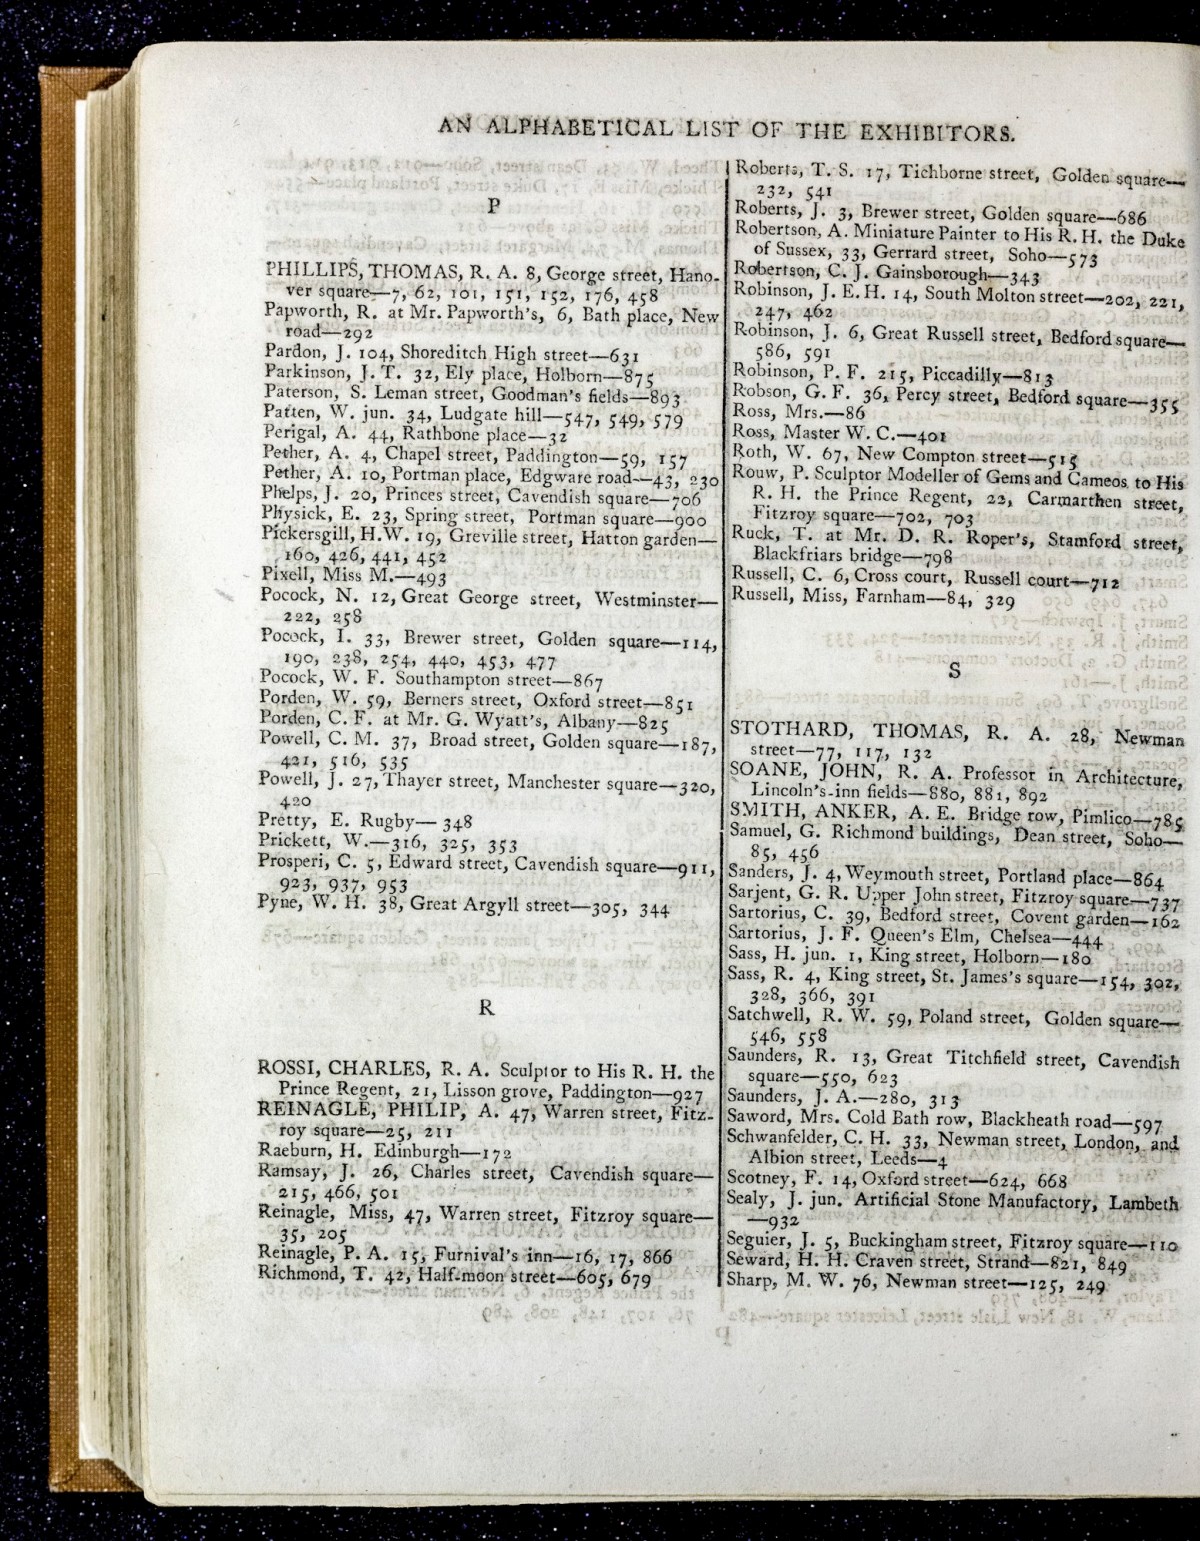 AN ALPHABETICAL LIST OF THE EXHIBITORS.
P
PHILLIPS, THOMAS, R. A. 8, George street, Hano-
ver square—7, 62, 101, 151, 152, 176, 458
Papworth, R. at Mr. Papworth's, 6, Bath place, New
road—292
Pardon, J. 104, Shoreditch High street—631
Parkinson, J. T. 32, Ely place, Holborn—875
Paterson, S. Leman street, Goodman's fields—893
Patten, W. jun. 34, Ludgate hill—547, 549, 579
Perigal, A. 44, Rathbone place—32
Pether, A. 4, Chapel street, Paddington—59, 157
Pether, A. 10, Portman place, Edgware road—43, 230
Phelps, J. 20, Princes street, Cavendish square—706
Physick, E. 23, Spring street, Portman square—900
Pickersgill, H.W. 19, Greville street, Hatton garden—
160, 426, 441, 452
Pixell, Miss M.—493
Pocock, N. 12, Great George street, Westminster—
222, 258
Pocock, I. 33, Brewer street, Golden square—114,
190, 238, 254, 440, 453, 477
Pocock, W. F. Southampton street—867
Porden, W. 59, Berners street, Oxford street—851
Porden, C. F. at Mr. G. Wyatt's, Albany—825
Powell, C. M. 37, Broad street, Golden square—187,
421, 516, 535
Powell, J. 27, Thayer street, Manchester square—320,
420
Pretty, E. Rugby—348
Prickett, W.—316, 325, 353
Prosperi, C. 5, Edward street, Cavendish square—911,
923, 937, 953
Pyne, W. H. 38, Great Argyll street—305, 344
R
ROSSI, CHARLES, R. A. Sculptor to His R. H. the
Prince Regent, 21, Lisson grove, Paddington—927
REINAGLE, PHILIP, A. 47, Warren street, Fitz-
roy square—25, 211
Raeburn, H. Edinburgh—172
Ramsay, J. 26, Charles street, Cavendish square—
215, 466, 501
Reinagle, Miss, 47, Warren street, Fitzroy square—
35, 205
Reinagle, P. A. 15, Furnival's inn—16, 17, 866
Richmond, T. 42, Half-moon street—605, 679
Roberts, T. S. 17, Tichborne street, Golden square—
232, 541
Roberts, J. 3, Brewer street, Golden square—686
Robertson, A. Miniature Painter to His R. H. the Duke
of Sussex, 33, Gerrard street, Soho—573
Robertson, C. J. Gainsborough—343
Robinson, J. E. H. 14, South Molton street—202, 221,
247, 462
Robinson, J. 6, Great Russell street, Bedford square—
586, 591
Robinson, P. F. 215, Piccadilly—813
Robson, G. F. 36, Percy street, Bedford square—355
Ross, Mrs.—86
Ross, Master W. C.—401
Roth, W. 67, New Compton street—515
Rouw, P. Sculptor Modeller of Gems and Cameos to His
R. H. the Prince Regent, 22, Carmarthen street,
Fitzroy square—702, 703
Ruck, T. at Mr. D. R. Roper's, Stamford street,
Blackfriars bridge—798
Russell, C. 6, Cross court, Russell court—712
Russell, Miss, Farnham—84, 329
S
STOTHARD, THOMAS, R. A. 28, Newman
street—77, 117, 132
SOANE, JOHN, R. A. Professor in Architecture,
Lincoln's-inn fields—880, 881, 892
SMITH, ANKER, A. E. Bridge row, Pimlico—785
Samuel, G. Richmond buildings, Dean street, Soho—
85, 456
Sanders, J. 4, Weymouth street, Portland place—864
Sarjent, G. R. Upper John street, Fitzroy square—737
Sartorius, C. 39, Bedford street, Covent garden—162
Sartorius, J. F. Queen's Elm, Chelsea—444
Sass, H. jun. 1, King street, Holborn—180
Sass, R. 4, King street, St. James's square—154, 302,
328, 366, 391
Satchwell, R. W. 59, Poland street, Golden square—
546, 558
Saunders, R. 13, Great Titchfield street, Cavendish
square—550, 623
Saunders, J. A.—280, 313
Saword, Mrs. Cold Bath row, Blackheath road—597
Schwanfelder, C. H. 33, Newman street, London, and
Albion street, Leeds—4
Scotney, F. 14, Oxford street—624, 668
Sealy, J. jun. Artificial Stone Manufactory, Lambeth
—932
Seguier, J. 5, Buckingham street, Fitzroy square—110
Seward, H. H. Craven street, Strand—821, 849
Sharp, M. W. 76, Newman street—125, 249